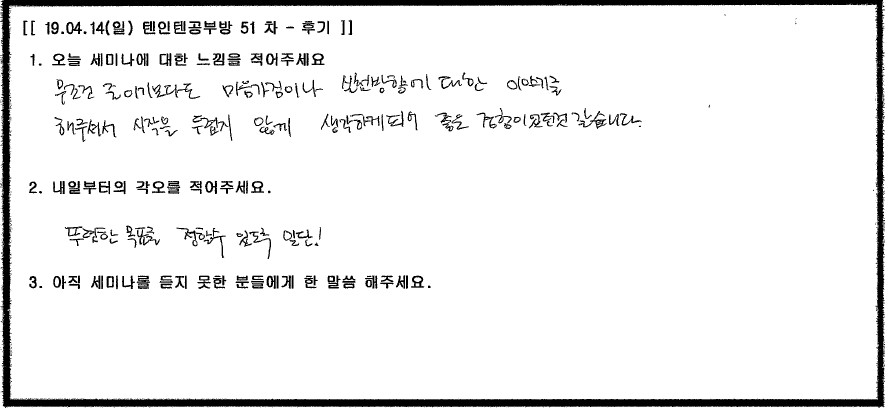 [[ 19.04.14(일) 텐인텐공부방 51 차 - 후기 ]]
1. 오늘 세미나에 대한 느낌을 적어주세요
무조건 줄이기보다도 마음가짐이나 실천방향에 대한 이야기를
해주셔서 시작을 두렵지 않게 생각하게되어 좋은 경험이었던것 같습니다.
2. 내일부터의 각오를 적어주세요.
뚜렷한 목표를 정할수 있도록 일단!
3. 아직 세미나를 듣지 못한 분들에게 한 말씀 해주세요.